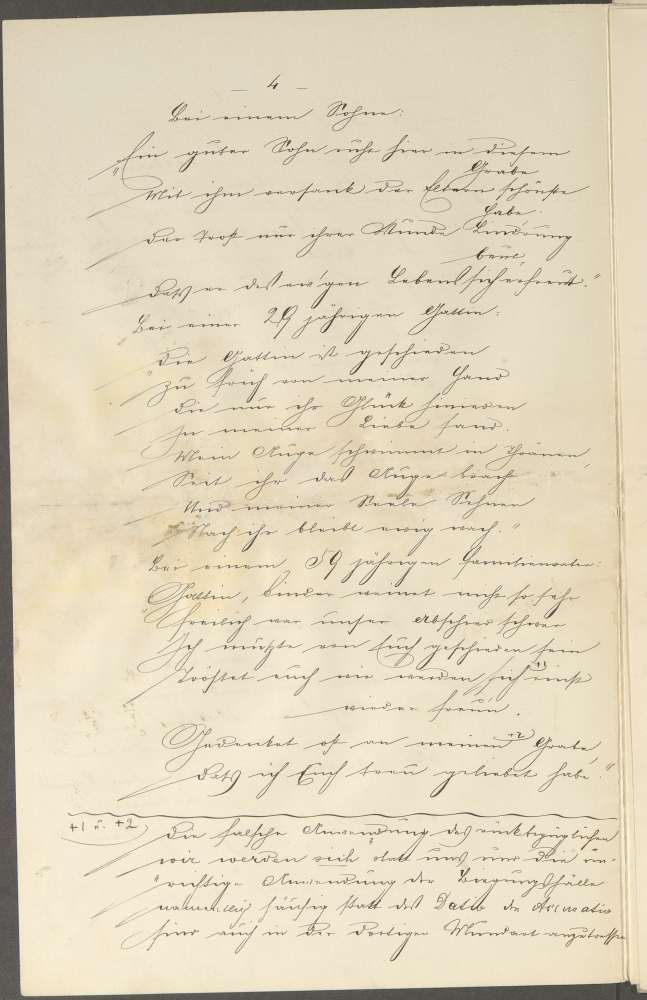 – 4 –
Bei einem Sohne:
„Ein guter Sohn ruht hier in diesem
Grabe
Mit ihm versank der Eltern schönste
Habe.
Der Trost nur ihrer Wunde Linderung
beut,
Daß er des ew'gen Lebens sich erfreut."
Bei einer 29 jährigen Gattin:
„Die Gattin ist geschieden
Zu früh von meiner Hand
Die nur ihr Glück hinieden
In meiner Liebe fand.
Mein Auge schwimmt in Thränen,
Seit ihr das Auge brach
Und meiner Seele Sehnen
Nach ihr bleibt ewig wach."
Bei einem 59 jährigen Familienvater:
„Gattin, Kinder weinet nicht so sehr
Freilich war unser Abschied schwer
Ich mußte von Euch geschieden sein
Tröstet euch wir werden sich +1) einst
wieder freun.
Gedenket oft an meinen +2) Grabe,
Daß ich Euch treu geliebet habe."
+1 u. +2) Die falsche Anwendung des rückbezüglichen
wir werden sich statt uns und die un-
richtige Anwendung der Biegungsfälle
namentlich häufig statt des Dativ der Accusativ
sind auch in der dortigen Mundart anzutreffen